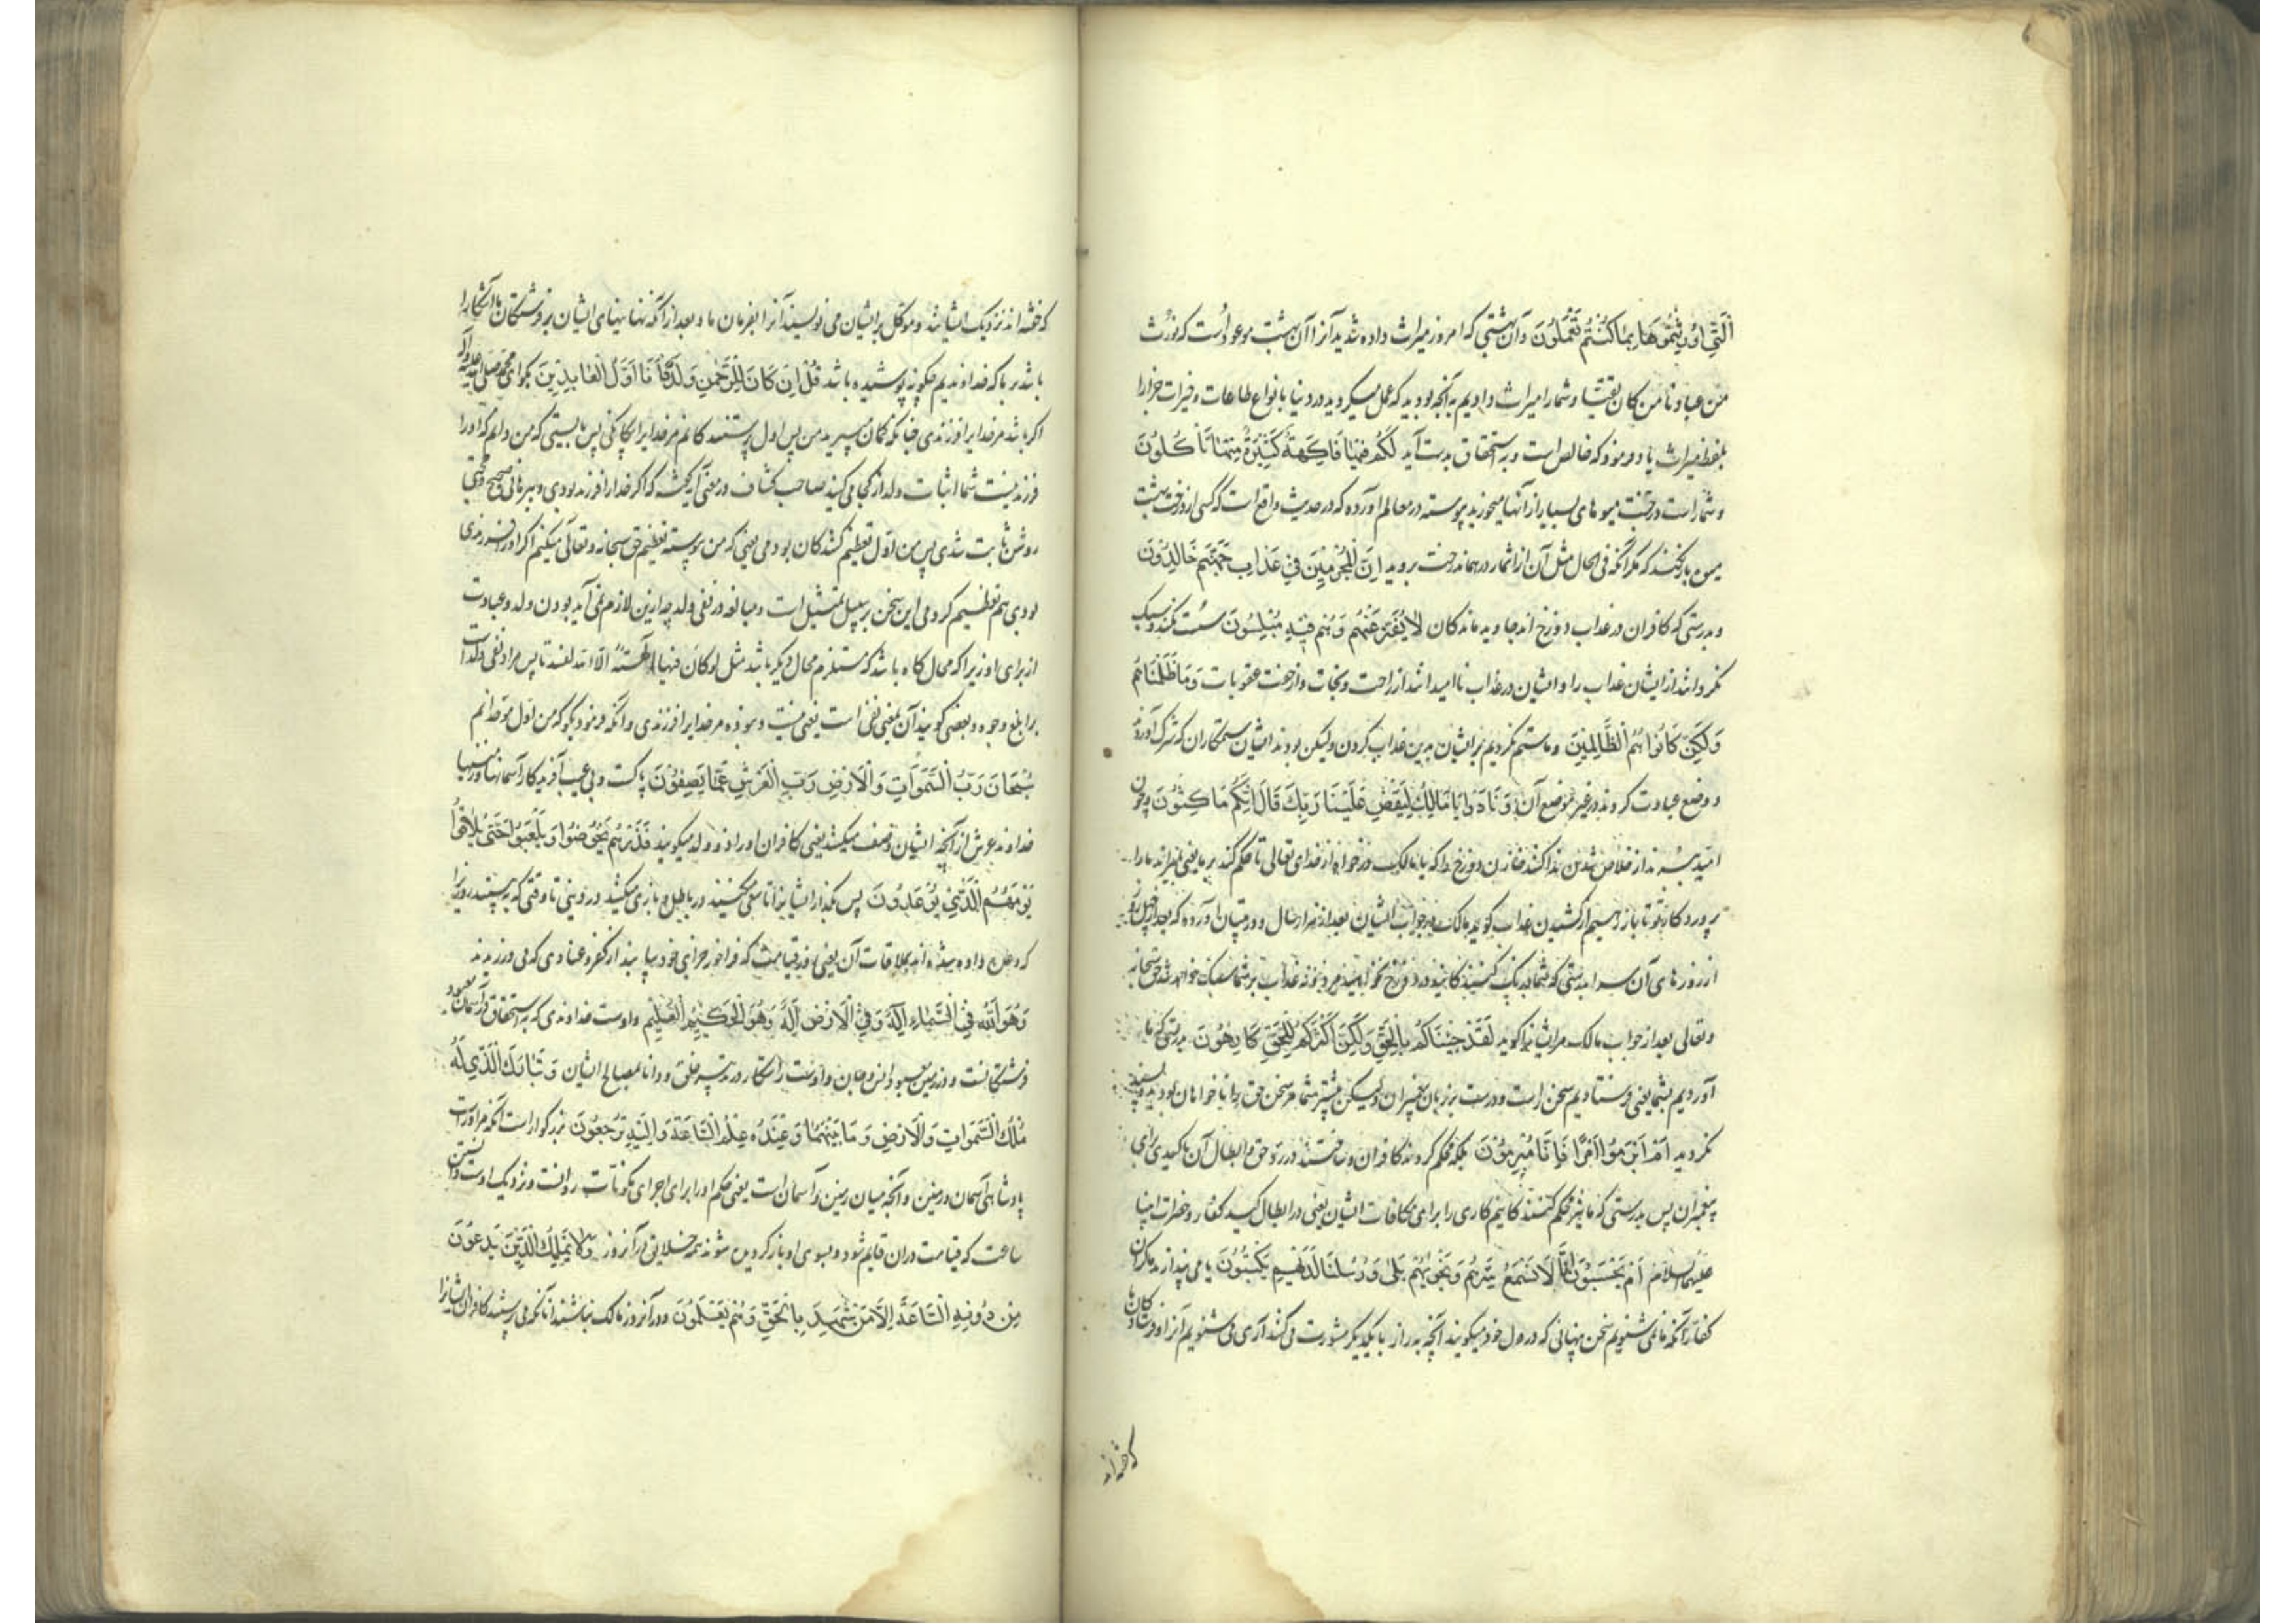 الَّتِي أُورِثْتُمُوهَا بِمَا كُنْتُمْ تَعْمَلُونَ وآن بهشتی که امروز میراث داده شدید آنرا آن بهشت موعود است که نورث
من عبادنا من کان تقیا و شما را میراث دادیم به آنچه بودید که عمل میکردید در دنیا بانواع طاعات و خیرات جزا را
بلفظ میراث یاد فرمود که خالص است و به استحقاق بدست آید لَكُمْ فِيهَا فَاكِهَةٌ كَثِيرَةٌ مِنْهَا تَأْكُلُونَ
و شما راست در جنت میوهای بسیار از آنها میخورید پیوسته در معالم آورده که در حدیث واقع است که کسی از درخت بهشت
میوه باز نکند که مکر آنکه فی الحال مثل آن از اثمار در همان درخت بروید إِنَّ الْمُجْرِمِينَ فِي عَذَابِ جَهَنَّمَ خَالِدُونَ
و بدرستی که کافران در عذاب دوزخ اند جاوید ماندکان لَا يُفَتَّرُ عَنْهُمْ وَهُمْ فِيهِ مُبْلِسُونَ سست نکنند و سبک
نکردانند از ایشان عذاب را و ایشان در عذاب ناامیدانند از راحت و نجات و از خفت عقوبات وَمَا ظَلَمْنَاهُمْ
وَلَكِنْ كَانُوا هُمُ الظَّالِمِينَ و ما ستم نکردیم بر ایشان بدین عذاب کردن ولیکن بودند ایشان ستمکاران که شرک آوردند
و وضع عبادت کردند در غیر موضع آن وَنَادَوْا يَا مَالِكُ لِيَقْضِ عَلَيْنَا رَبُّكَ قَالَ إِنَّكُمْ مَاكِثُونَ و چون
امید از خلاص شدن ندا کنند خازن دوزخ را که یا مالک درخواه از خدای تعالی تا حکم کند بر ما یعنی بمیراند ما را
پروردکار تو تا باز رهیم از کشیدن عذاب کوید مالک در جواب ایشان بعد از هزار سال و در تبیان آورده که بعد از چهل روز
از روزهای آن سرا بدرستی که شما درنک کنندکانید در دوزخ نخواهید مرد و نه عذاب بر شما سبک خواهد شد حق سبحانه
و تعالی بعد از جواب مالک مر ایشانرا کوید لَقَدْ جِئْنَاكُمْ بِالْحَقِّ وَلَكِنَّ أَكْثَرَكُمْ لِلْحَقِّ كَارِهُونَ بدرستی که ما
آوردیم بشما یعنی فرستادیم سخن راست و درست بر زبان پیغمبران ولیکن بیشتر شما مر سخن حق را ناخواهان بودید و پسند
نکردید أَمْ أَبْرَمُوا أَمْرًا فَإِنَّا مُبْرِمُونَ بلکه محکم کردند کافران و ساختند در رد حق و ابطال آن کیدی برای
پیغمبران پس بدرستی که ما نیز محکم کنندکانیم کاری را برای مکافات ایشان یعنی در ابطال کید کفار و حضرات انبیا
علیهم السلام أَمْ يَحْسَبُونَ أَنَّا لَا نَسْمَعُ سِرَّهُمْ وَنَجْوَاهُمْ بَلَى وَرُسُلُنَا لَدَيْهِمْ يَكْتُبُونَ یا می پندارند
کفار آنکه ما نمی شنویم سخن پنهانی که در دل خود میکویند آنچه به راز با یکدیکر مشورت می کنند آری می شنویم آنرا و فرستادکان ما
که حفظه اند
که حفظه اند نزدیک ایشانند و موکل بر ایشان می نویسند آنرا بفرمان ما و بعد از آنکه نهانیهای ایشان بر فرشتکان ما آشکارا
باشد بر ما که خداوندیم چکونه پوشیده باشد قُلْ إِنْ كَانَ لِلرَّحْمَنِ وَلَدٌ فَأَنَا أَوَّلُ الْعَابِدِينَ بکو ای محمد صلی الله علیه وآله
اکر باشد مر خدایرا فرزندی چنانکه کمان میبرید من پس اول پرستندکانم مر خدایرا یکانکی پس بایستی که من دانم که او را
فرزند نیست شما اثبات ولد از کجا می کنید صاحب کشاف در معنی آیه کفته که اکر خدا را فرزند بودی و ببرهانی صحیح و حجتی
روشن ثابت شدی پس من اول تعظیم کنندکان بودمی یعنی که من پیوسته تعظیم حق سبحانه وتعالی میکنم اکر او را فرزندی
بودی هم تعظیم کردمی این سخن بر سبیل تمثیل است و مبالغه در نفی ولد چه ازین لازم نمی آید بودن ولد و عبادت
از برای او زیرا که محال کاه باشد که مستلزم محال دیکر باشد مثل لو کان فیهما آلهة الا الله لفسدتا پس مراد نفی ولد است
بر ابلغ وجوه و بعضی کویند آن بمعنی نفی است یعنی نیست و نبوده مر خدایرا فرزندی و آنکه فرمود بکو که من اول موحدانم
سُبْحَانَ رَبِّ السَّمَوَاتِ وَالْأَرْضِ رَبِّ الْعَرْشِ عَمَّا يَصِفُونَ پاکست و بی عیب آفریدکار آسمانها و زمینها
خداوند عرش از آنچه ایشان وصف میکنند یعنی کافران او را ولد میکویند فَذَرْهُمْ يَخُوضُوا وَيَلْعَبُوا حَتَّى يُلَاقُوا
يَوْمَهُمُ الَّذِي يُوعَدُونَ پس بکذار ایشانرا تا سعی کنند در باطل و بازی میکنند در دنیی تا وقتی که به بینند روز را
که وعده داده شده اند بملاقات آن یعنی روز قیامت که فراخور جزای خود بیابند از کفر و عنادی که می ورزیدند
وَهُوَ اللَّهُ فِي السَّمَاءِ إِلَهٌ وَفِي الْأَرْضِ إِلَهٌ وَهُوَ الْحَكِيمُ الْعَلِيمُ و اوست خداوندی که به استحقاق در آسمان معبود
فرشتکانست و در زمین معبود انس و جان و اوست راستکار در تدبیر خلق و دانا بمصالح ایشان وَتَبَارَكَ الَّذِي لَهُ
مُلْكُ السَّمَوَاتِ وَالْأَرْضِ وَمَا بَيْنَهُمَا وَعِنْدَهُ عِلْمُ السَّاعَةِ وَإِلَيْهِ تُرْجَعُونَ بزرکوار است آنکه مر او راست
پادشاهی آسمان و زمین و آنچه میان زمین و آسمان است یعنی حکم او را برای اجرای مکونات روانست و نزدیک اوست دانستن
ساعت که قیامت دران قایم شود و بسوی او باز کردیده شوند همه خلایق در آنروز وَلَا يَمْلِكُ الَّذِينَ يَدْعُونَ
مِنْ دُونِهِ الشَّفَاعَةَ إِلَّا مَنْ شَهِدَ بِالْحَقِّ وَهُمْ يَعْلَمُونَ و در آنروز مالک نباشند آنانکه می پرستند کافران ایشانرا